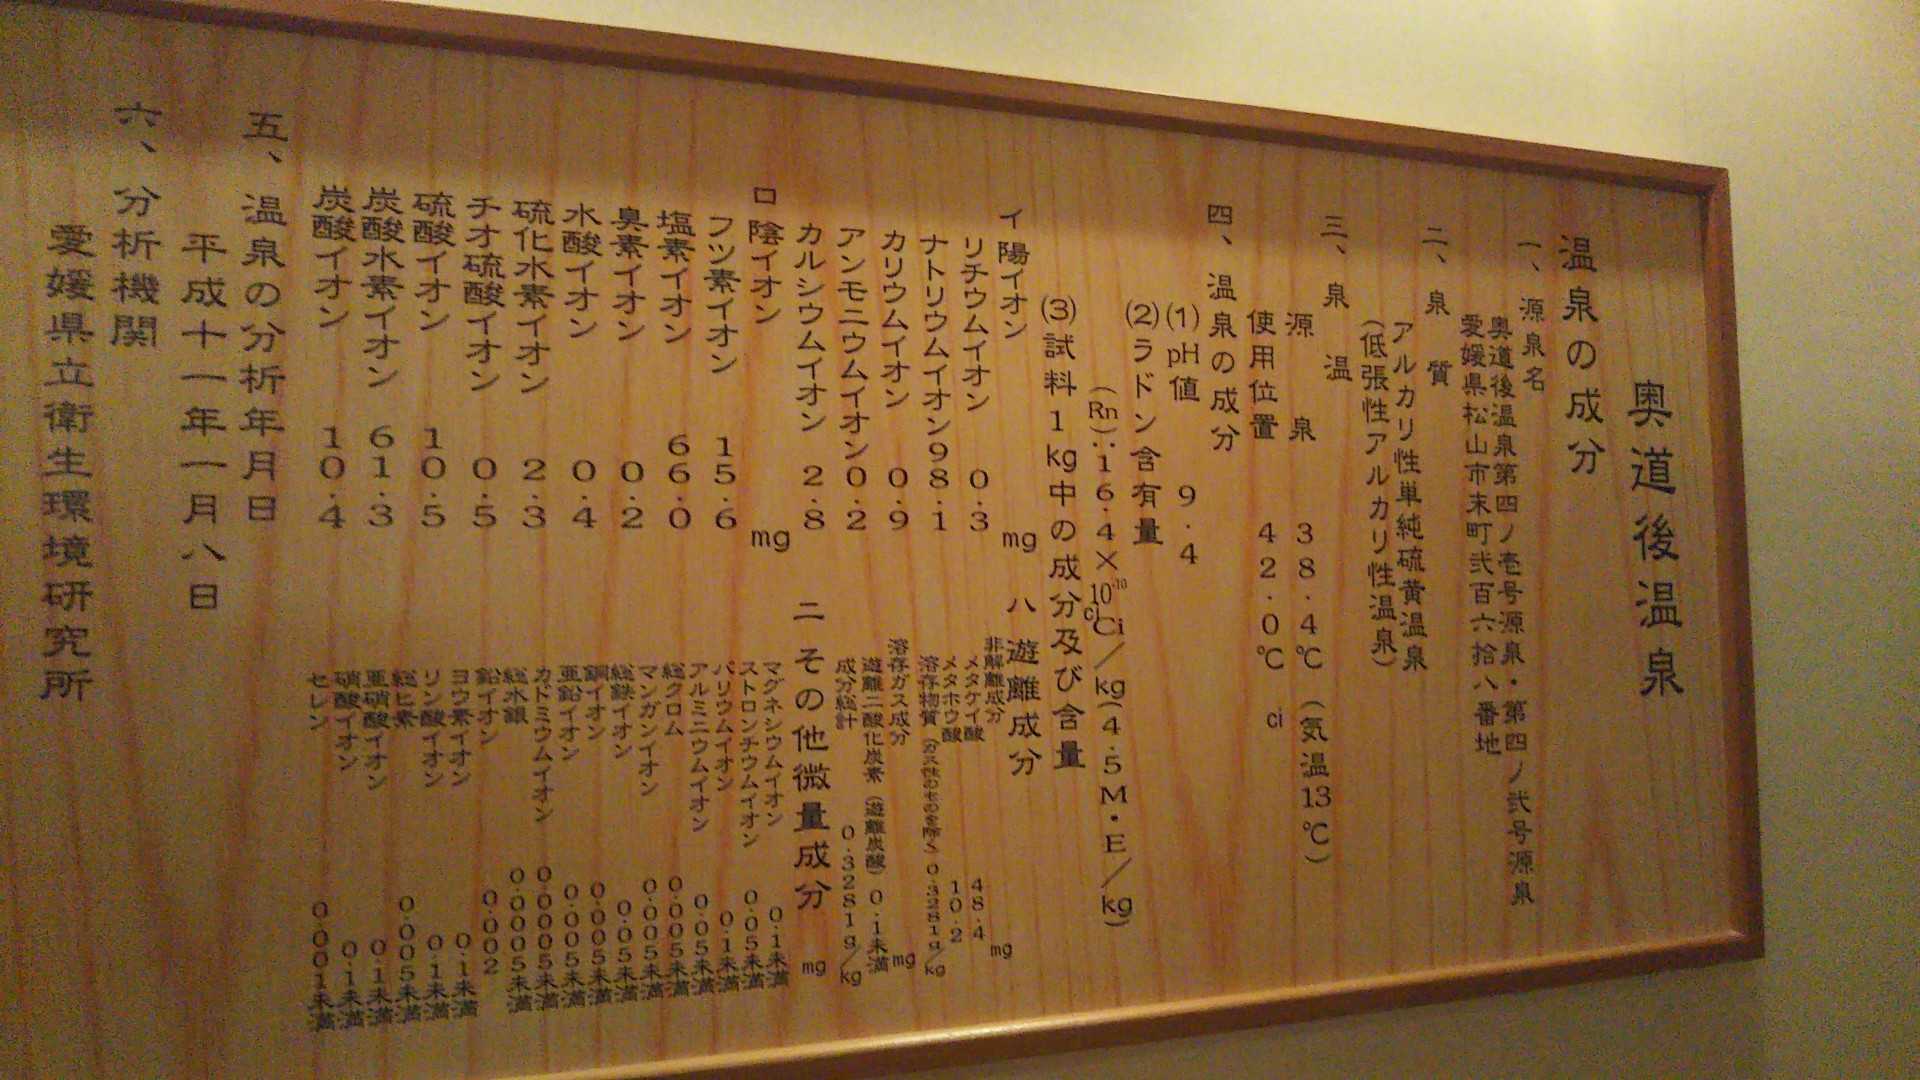 奥道後温泉
温泉の成分
一、源泉名
奥道後温泉第四ノ壱号源泉・第四ノ弐号源泉
愛媛県松山市末町弐百六拾八番地
二、泉質
アルカリ性単純硫黄温泉
（低張性アルカリ性温泉）
三、泉温
源泉 38.4℃（気温13℃）
使用位置 42.0℃ ci
四、温泉の成分
(1)pH値 9.4
(2)ラドン含有量
（Rn）:16.4×10-10Ci/kg（4.5M・E/kg）
ci
(3)試料1kg中の成分及び含量
イ陽イオン mg
リチウムイオン 0.3
ナトリウムイオン98.1
カリウムイオン 0.9
アンモニウムイオン0.2
カルシウムイオン 2.8
ロ陰イオン mg
フツ素イオン 15.6
塩素イオン 66.0
臭素イオン 0.2
水酸イオン 0.4
硫化水素イオン 2.3
チオ硫酸イオン 0.5
硫酸イオン 10.5
炭酸水素イオン 61.3
炭酸イオン 10.4
ハ遊離成分
非解離成分 mg
メタケイ酸 48.4
メタホウ酸 10.2
溶存物質（ガス性のものを除く）0.3281g/kg
溶存ガス成分 mg
遊離二酸化炭素（遊離炭酸）0.1未満
成分総計 0.3281g/kg
ニその他微量成分 mg
マグネシウムイオン 0.1未満
ストロンチウムイオン 0.05未満
バリウムイオン 0.1未満
アルミニウムイオン 0.05未満
総クロム 0.005未満
マンガンイオン 0.005未満
総鉄イオン 0.05未満
銅イオン 0.005未満
亜鉛イオン 0.005未満
カドミウムイオン 0.0005未満
総水銀 0.0005未満
鉛イオン 0.002
ヨウ素イオン 0.1未満
リン酸イオン 0.1未満
総ヒ素 0.005未満
亜硝酸イオン 0.1未満
硝酸イオン 0.1未満
セレン 0.001未満
五、温泉の分析年月日
平成十一年一月八日
六、分析機関
愛媛県立衛生環境研究所